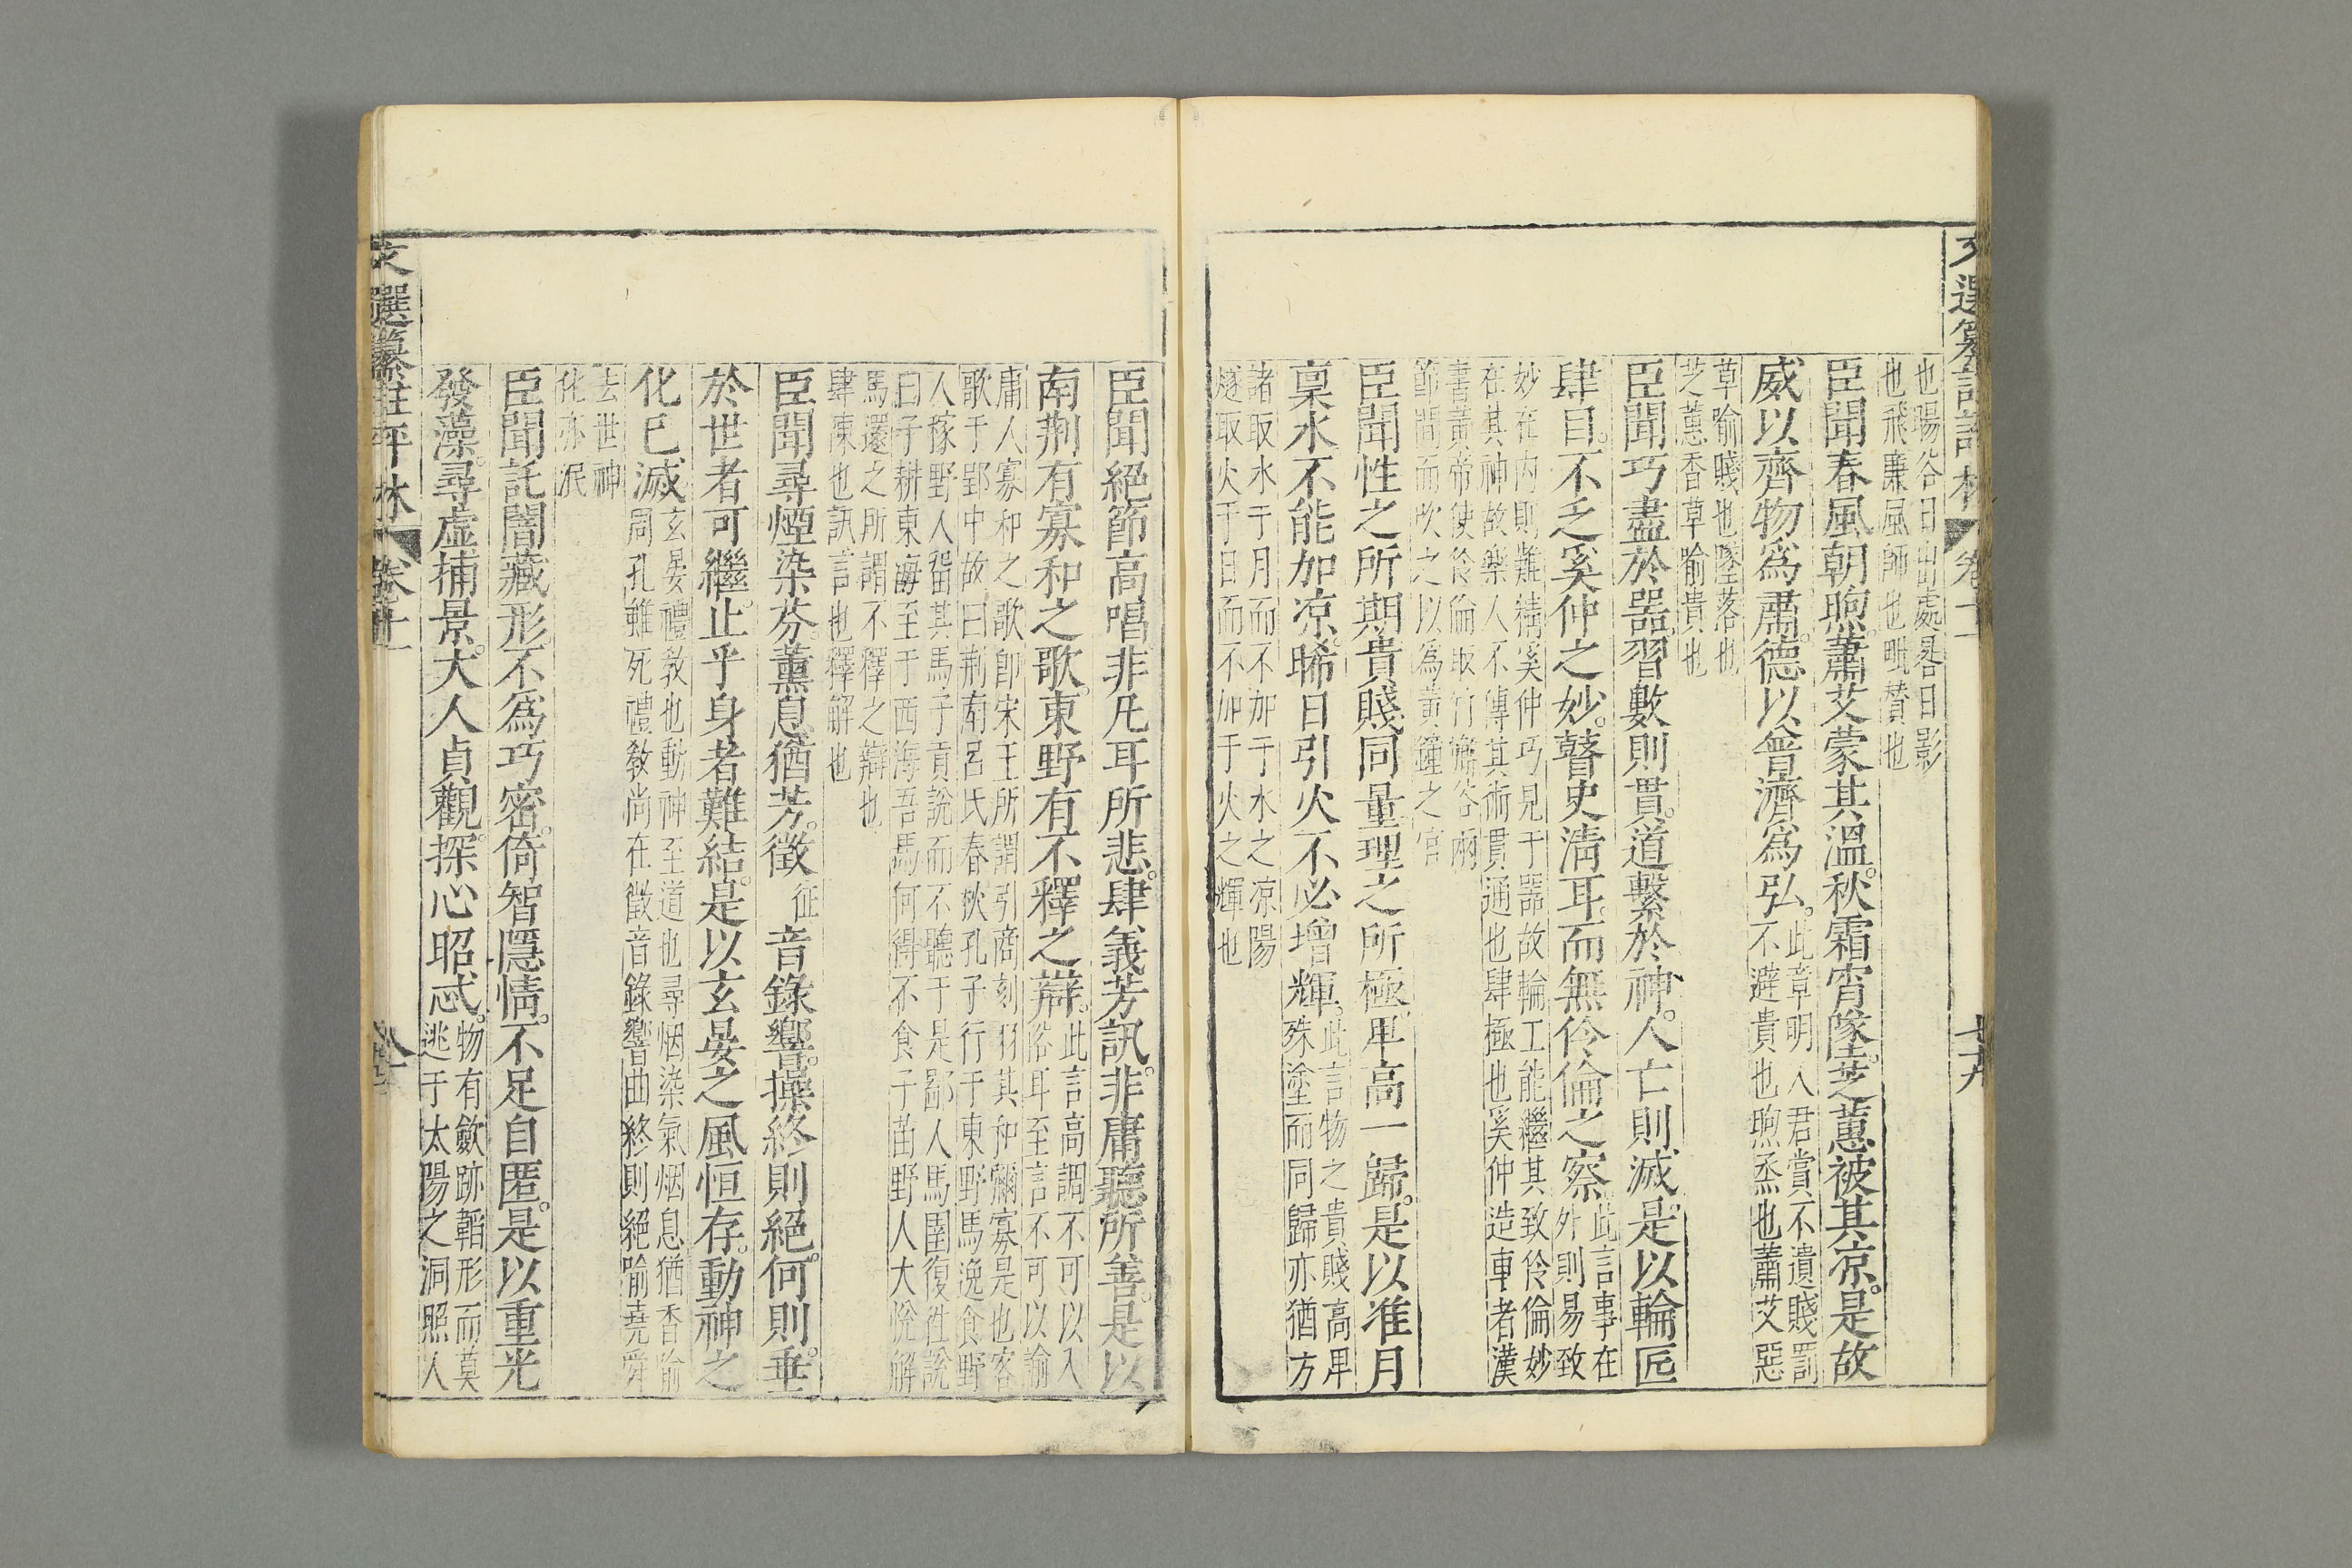 也暘谷日出處晷日影
也飛廉風師也毗贊也
臣聞春風朝煦蕭艾蒙其溫秋霜宵墜芝蕙被其凉是故
威以齊物爲肅德以普濟爲弘此章明人君賞不遺賤罰
不避貴也煦烝也蕭艾惡
草喻賤也墜落也
芝蕙香草喻貴也
臣聞巧盡於器習數則貫道繫於神人亡則滅是以輪匠
肆目不乏奚仲之妙瞽史淸耳而無伶倫之察此言事在
外則易致
妙在内則難精奚仲巧見于器故輪工能繼其致伶倫妙
在其神故樂人不傳其術貫通也肆極也奚仲造車者漢
書黃帝使伶倫取竹嶰谷兩
節間而吹之以為黃鐘之宮
臣聞性之所期貴賤同量理之所極卑高一歸是以准月
稟水不能加凉晞日引火不必增輝此言物之貴賤高卑
殊塗而同歸亦猶方
諸取水于月而不加于水之凉陽
燧取火于日而不加于火之輝也
臣聞絕節高唱非凡耳所悲肆義芳訊非庸聽所善是以
南荆有寡和之歌東野有不釋之辯此言高調不可以入
俗耳至言不可以諭
庸人寡和之歌卽宋玉所謂引商刻羽其和彌寡是也客
歌于郢中故曰荆南呂氏春秋孔子行于東野馬逸食野
人稼野人留其馬子貢說而不聽于是鄙人馬圉復往說
曰子耕東海至于西海吾馬何得不食子苗野人大悅解
馬還之所謂不釋之辯也
肆陳也訊言也釋解也
臣聞尋煙染芬薰息猶芳徵征音錄響操終則絕何則垂
於世者可繼止乎身者難結是以玄晏之風恒存動神之
化已滅玄晏禮敎也動神至道也尋烟染氣烟息猶香喻
周孔雖死禮敎尚在徵音錄響曲終則絕喻堯舜
去世神
化亦泯
臣聞託闇藏形不爲巧密倚智隱情不足自匿是以重光
發藻尋虛捕景大人貞觀探心昭忒物有歛跡韜形而莫
逃于太陽之洞照人
文選纂註評林 卷十一